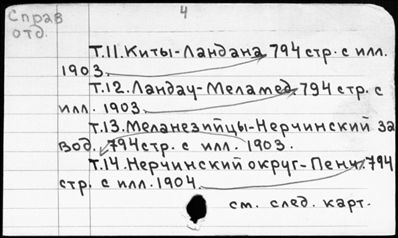 Справ
отд.
4
Т.11. Киты-Ландана 794 стр. с илл.
1903.
Т.12. Ландау-Меламед 794 стр. с
илл. 1903.
Т.13. Меланезийцы-Нерчинский за
вод. 794 стр. с илл. 1903.
Т.14. Нерчинский округ-Пенч. 794
стр. с илл. 1904.
см. след. карт.